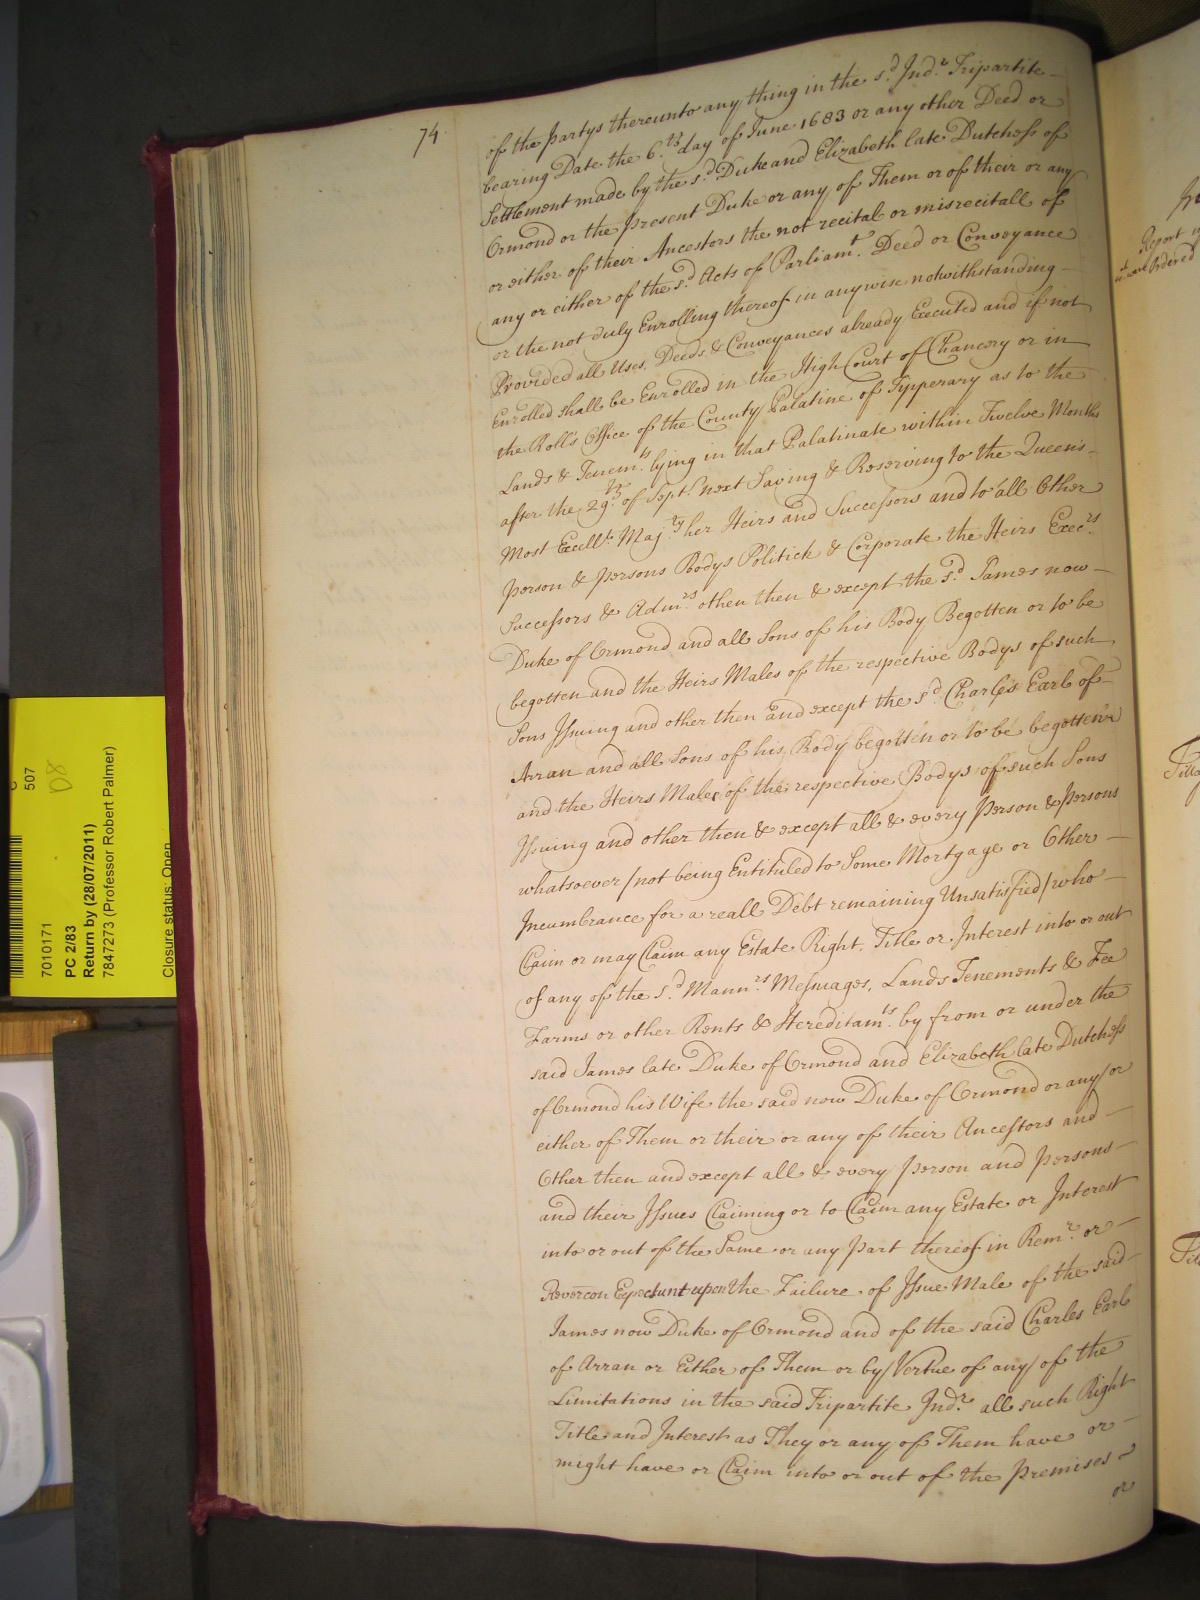 74
of the partys thereunto any thing in the s.d Ind.re Tripartite
bearing Date the 6.th day of June 1683 or any other Deed or
Settlement made by the s.d Duke and Elizabeth late Dutchess of
Ormond or the present Duke or any of Them or of their or any
or either of their Ancestors the not recital or misrecitall of
any or either of the s.d Acts of Parliam.t Deed or Conveyance
or the not duly Enrolling thereof in any wise notwithstanding
Provided all Uses, Deeds & Conveyances already Executed and if not
Enrolled shall be Enrolled in the High Court of Chancery or in
the Roll's Office of the County Palatine of Typperary as to the
Lands & Tenem.ts lying in that Palatinate within Twelve Months
after the 29.th of Sept.r next Saving & Reserving to the Queen's
Most Excell.t Maj.ty her Heirs and Successors and to all Other
person & persons Bodys Politick & Corporate the Heirs Exec.rs
Successors & Adm.rs othen then & except the s.d James now
Duke of Ormond and all Sons of his Body Begotten or to be
begotten and the Heirs Males of the respective Bodys of such
Sons Issuing and other then and except the s.d Charles Earl of
Arran and all Sons of his Body begotten or to be begotten
and the Heirs Males of the respective Bodys of such Sons
Issuing and other then & except all & every Person & persons
whatsoever / not being Entituled to Some Mortgage or Other
Incumbrance for a reall Debt remaining Unsatisfied / who
Claim or may Claim any Estate Right, Title or Interest into or out
of any of the s.d Mann.rs Messuages, Lands Tenements & Fee
Farms or other Rents & Hereditam.ts by from or under the
said James late Duke of Ormond and Elizabeth late Dutchess
of Ormond his Wife the said now Duke of Ormond or any or
either of Them or their or any of their Ancestors and
Other then and except all & every person and persons
and their Issues Claiming or to Claim any Estate or Interest
into or out of the Same or any part thereof in Rem.r or
Revercon Expectant upon the Failure of Issue Male of the said
James now Duke of Ormond and of the said Charles Earl
of Arran or Either of Them or by Vertue of any of the
Limitations in the said Tripartite Ind.re all such Right
Title and Interest as They or any of Them have or
might have or Claim into or out of the premises
or
Report
Ordered
507
D8
7010171
PC 2/83
Return by (28/07/2011)
7847273 (Professor Robert Palmer)
Closure status: Open